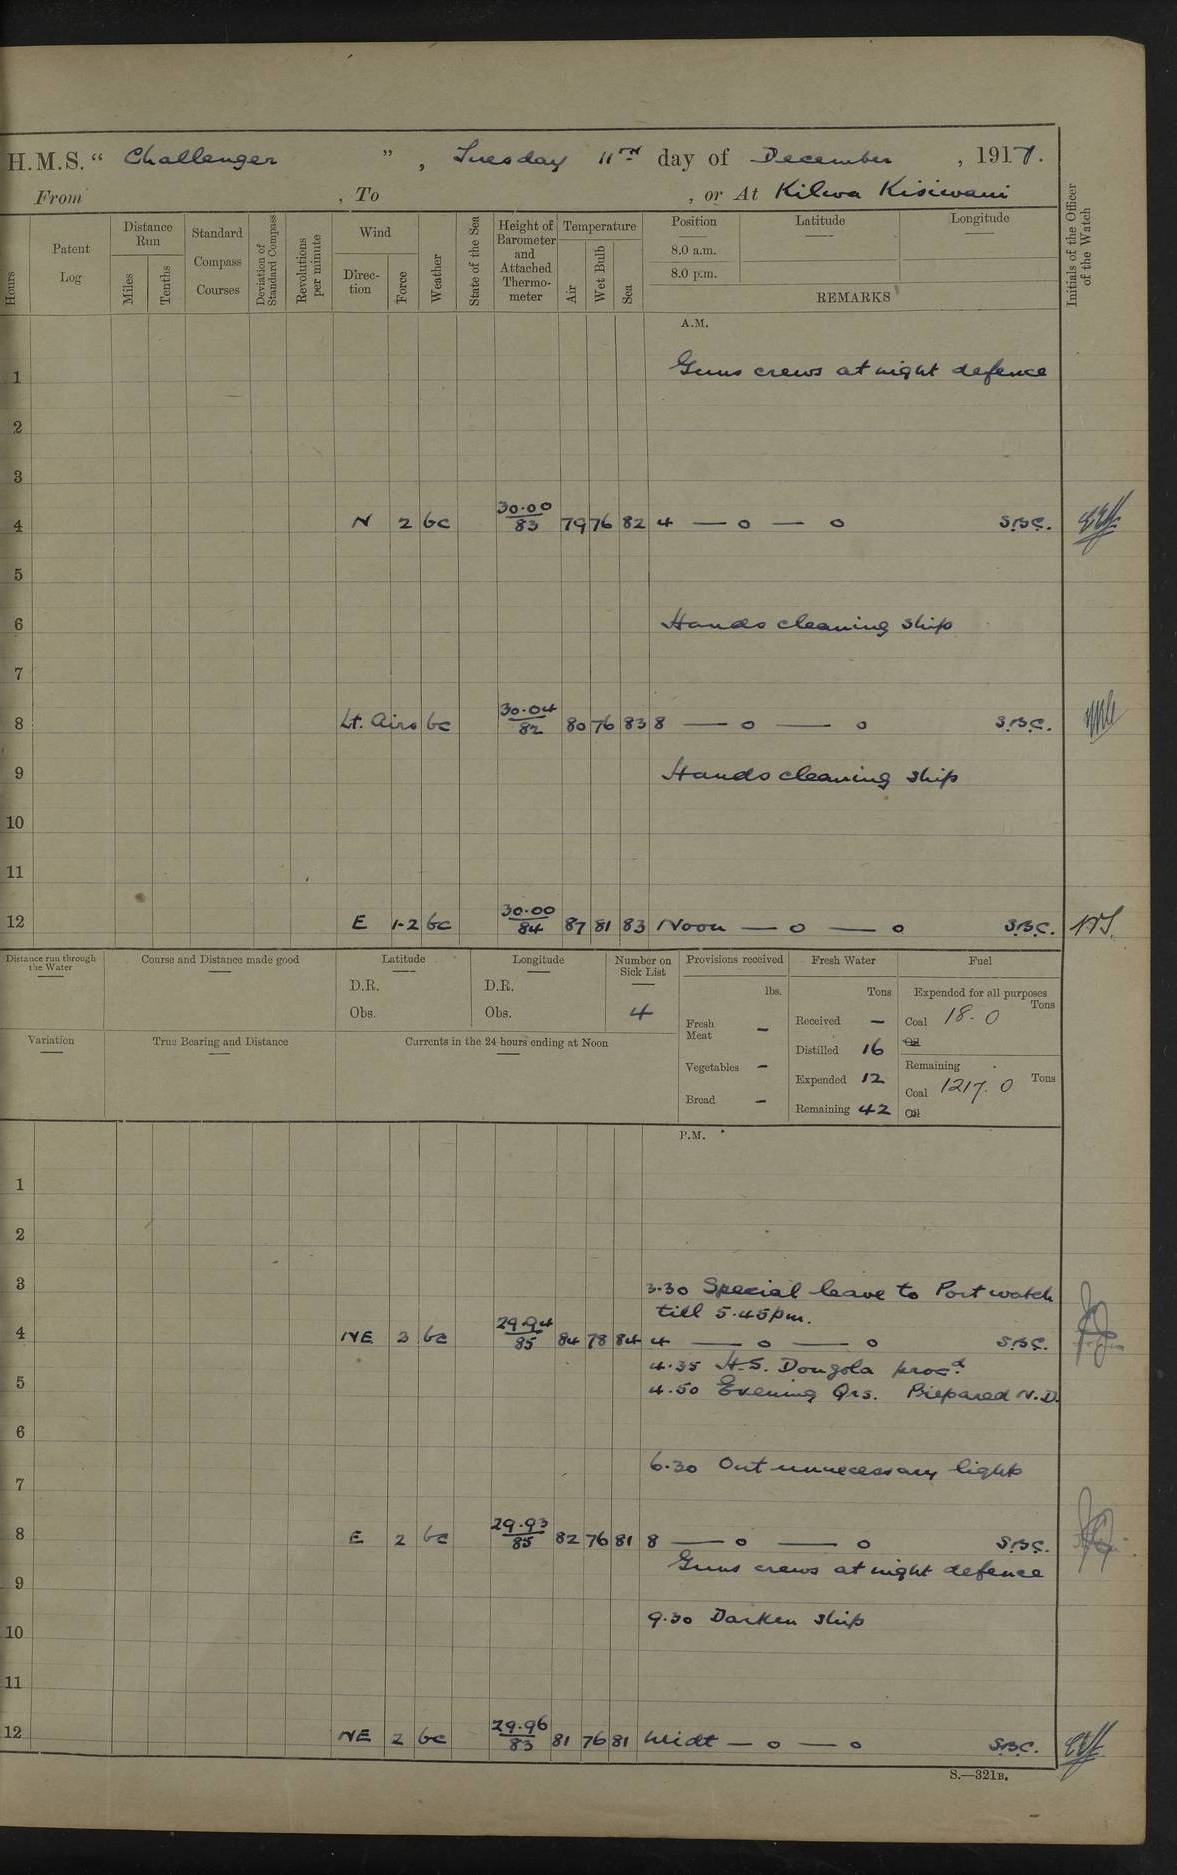 H.M.S. “ Challenger ”, Tuesday 11TH day of December, 1917.
From , To , or At Kilwa Kisiwani
Hours
Patent Log
Distance Run
Miles
Tenths
Standard Compass Courses
Deviation of Standard Compass
Revolutions per minute
Wind
Direc-tion
Force
Weather
State of the Sea
Height of Barometer and Attached Thermo-meter
Temperature
Air
Wet Bulb
Sea
Position Latitude Longitude
8.0 a.m.
8.0 p.m.
REMARKS
Initials of the Officer of the Watch
A.M.
1 Guns crews at night defence
2
3
4 N 2 bc 30.00/83 79 76 82 4 — o — o S.B.C.
5
6 Hands cleaning ship
7
8 Lt. Airs bc 30.04/82 80 76 83 8 — o — o S.B.C.
9 Hands cleaning ship
10
11
12 E 1-2 bc 30.00/84 87 81 83 Noon — o — o S.B.C.
Distance run through the Water
Course and Distance made good
Latitude
D.R.
Obs.
Longitude
D.R.
Obs.
Number on Sick List
4
Provisions received
lbs.
Fresh Meat –
Vegetables –
Bread –
Fresh Water
Tons
Received –
Distilled 16
Expended 12
Remaining 42
Fuel
Expended for all purposes
Tons
Coal 18.0
Oil
Remaining
Tons
Coal 1217.0
Oil
Variation
True Bearing and Distance
Currents in the 24 hours ending at Noon
P.M.
1
2
3 3.30 Special leave to Port watch
till 5.45pm.
4 NE 3 bc 29.94/85 84 78 84 4 — o — o S.B.C.
4.35 H.S. Dongola procd.
5 4.50 Evening Qrs. Prepared N.D.
6
6.30 Out unnecessary lights
7
8 E 2 bc 29.93/85 82 76 81 8 — o — o S.B.C.
Guns crews at night defence
9
9.30 Darken ship
10
11
12 NE 2 bc 29.96/83 81 76 81 Midt — o — o S.B.C.
S.—321B.